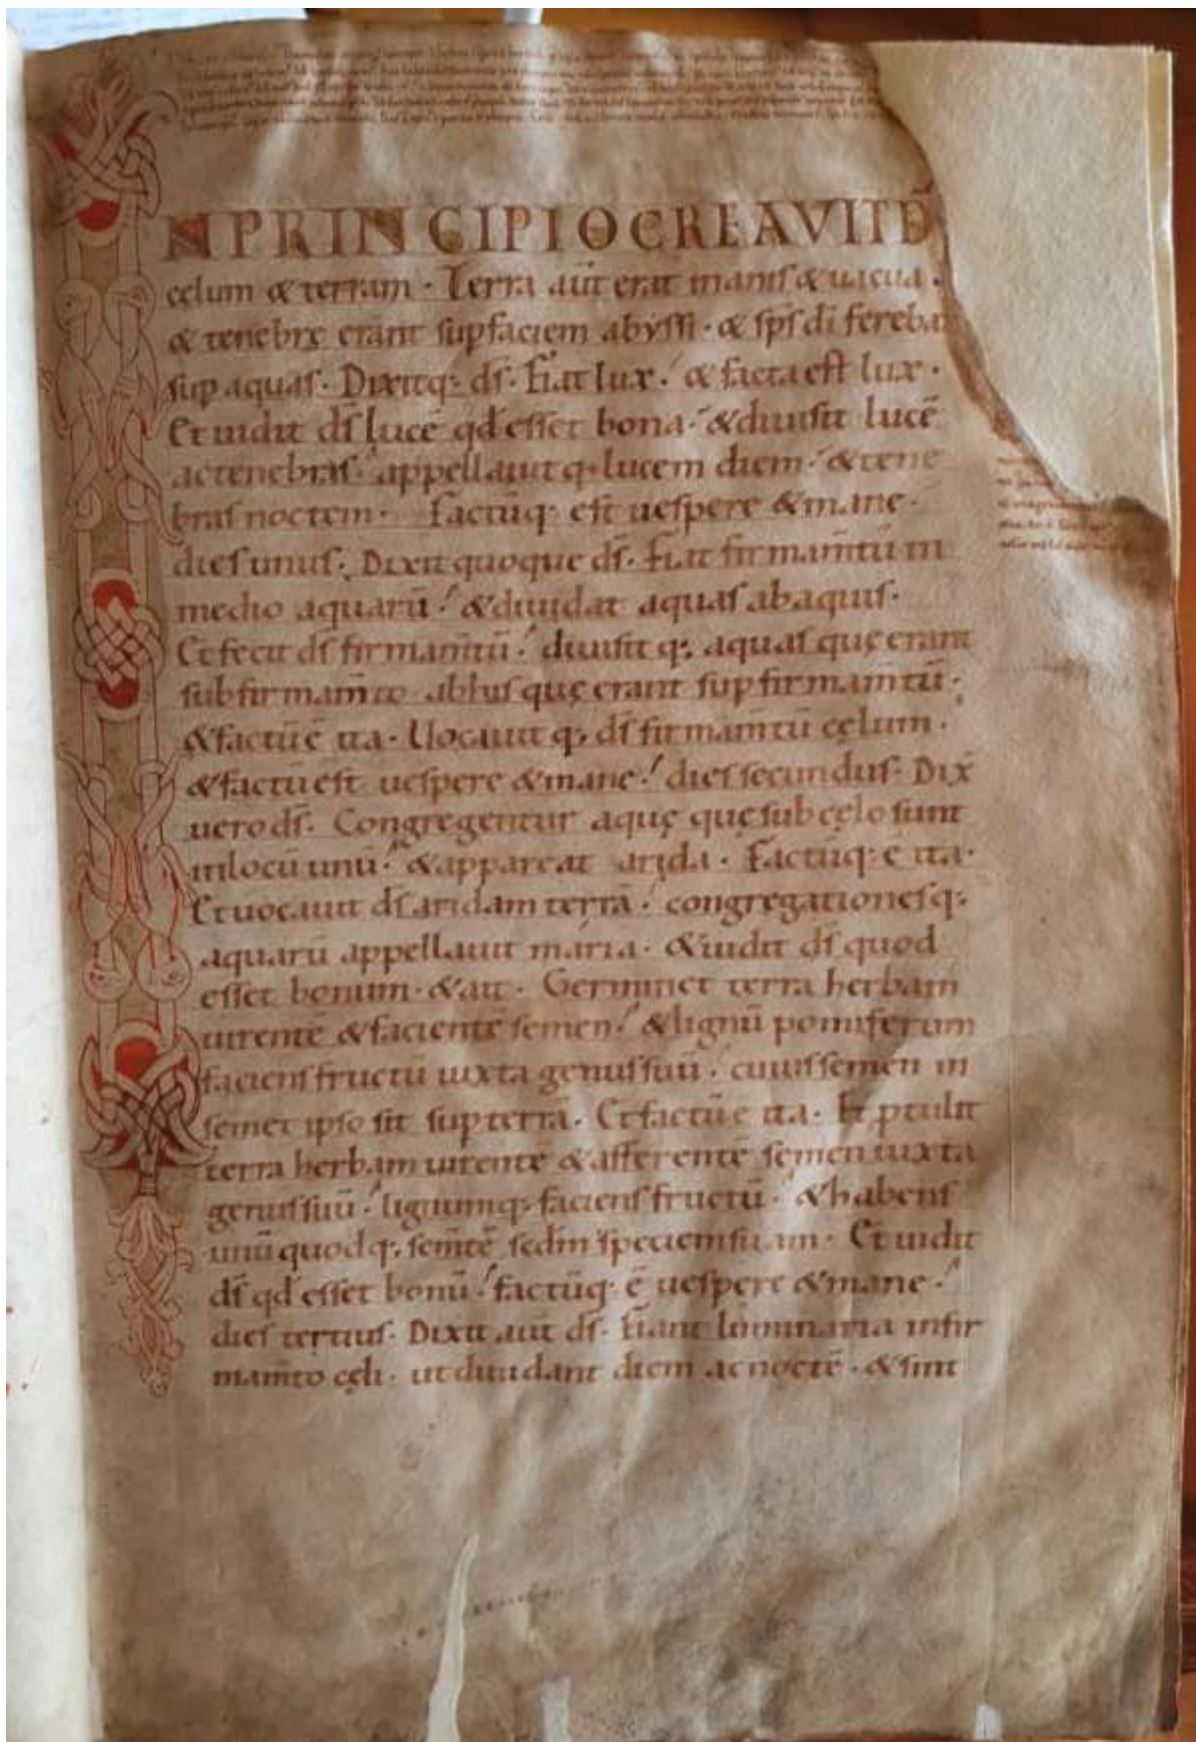 IN PRINCIPIO CREAVIT D̄S
cęlum & terram · Terra aūt erat inanis & uacua ·
& tenebrę erant sup faciem abyssi · & sp̄s dī fereba
sup aquas · Dixitq: d̄s · Fiat lux · & facta est lux ·
Et uidit d̄s lucē qd̄ esset bona · & diuisit lucē
ac tenebras · appellauitq: lucem diem · & tene
bras noctem · Factūq: est uespere & mane ·
dies unus · Dixit quoque d̄s · Fiat firmam̄tū in
medio aquarū · & diuidat aquas ab aquis ·
Et fecit d̄s firmam̄tū · diuisitq: aquas quę erant
sub firmam̄to ab his quę erant sup firmam̄tū ·
& factū ē ita · Uocauitq: d̄s firmam̄tū cęlum ·
& factū est uespere & mane · dies secundus · Dix̄
uero d̄s · Congregentur aquę quę sub cęlo sunt
in locū unū · & appareat arida · Factūq: ē ita ·
Et uocauit d̄s aridam terrā · congregationesq:
aquarū appellauit maria · & uidit d̄s quod
esset bonum · & ait · Germinet terra herbam
uirentē & facientē semen · & lignū pomiferum
faciens fructū iuxta genus suū · cuius semen in
semet ipso sit sup terrā · Et factū ē ita · Et ptulit
terra herbam uirentē & afferentē semen iuxta
genus suū · lignumq: faciens fructū · & habens
unū quodq: sem̄tē scdm̄ speciem suam · Et uidit
d̄s qd̄ esset bonū · factūq: ē uespere & mane ·
dies tertius · Dixit aūt d̄s · Fiant luminaria in fir
mam̄to cęli · ut diuidant diem ac noctē · & sint